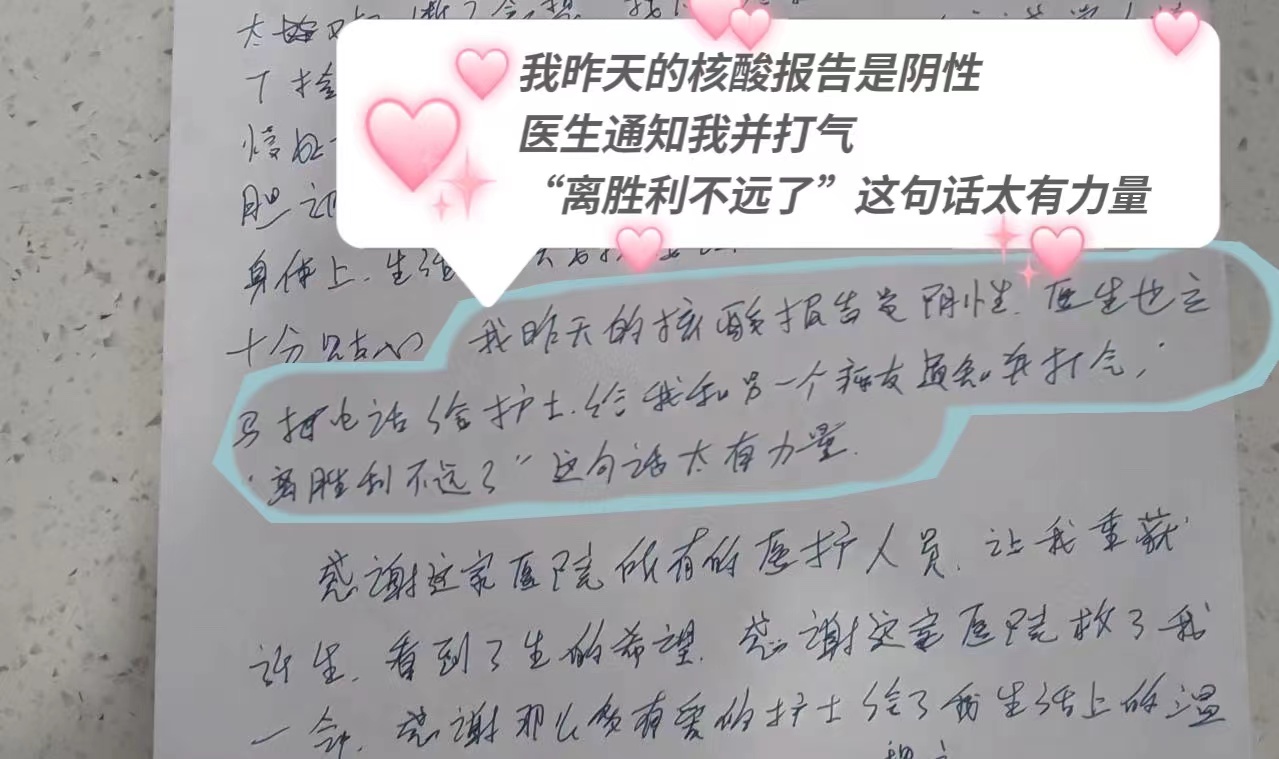 我昨天的核酸报告是阴性
医生通知我并打气
“离胜利不远了”这句话太有力量
身体上.生活
十分贴心
我昨天的核酸报告是阴性.医生也立
马打电话给护士.给我和另一个病友通知并打气,
“离胜利不远了”这句话太有力量.
感谢这家医院所有的医护人员.让我重获
新生.看到了生的希望.感谢这家医院救了我
一命.感谢那么多有爱的护士给了我生活上的温